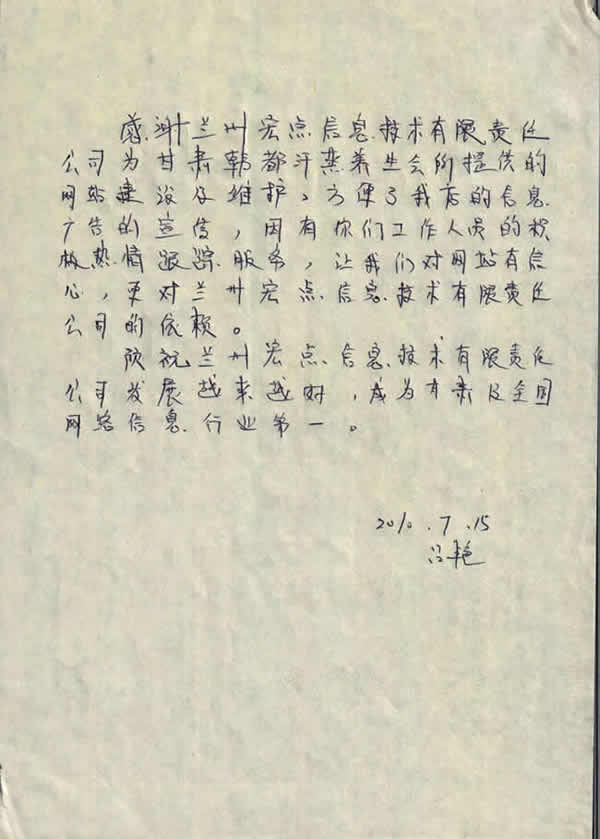 感谢兰州宏点信息技术有限责任
公司为甘肃韩都汗蒸养生会所提供的
网站建设及维护,方便了我店的信息
广告的宣传,因有你们工作人员的积
极热情跟踪服务,让我们对网站有信
心,更对兰州宏点信息技术有限责任
公司的依赖。
预祝兰州宏点信息技术有限责任
公司发展越来越好,成为甘肃及全国
网络信息行业第一。
2010.7.15
吕艳